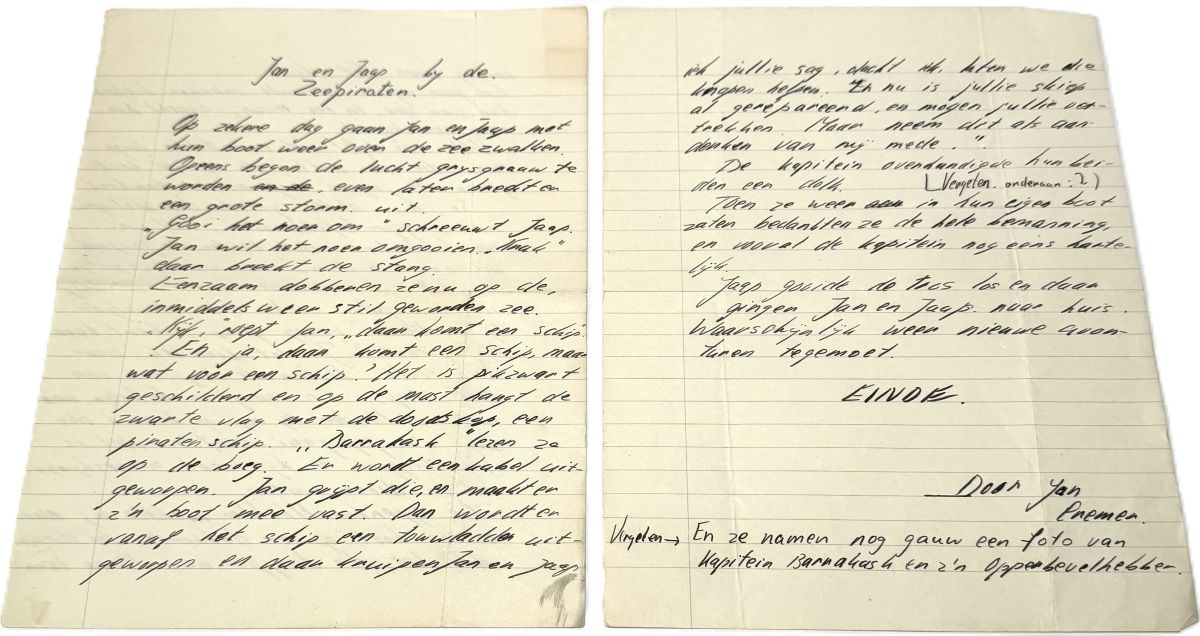 Jan en Jaap by de.
Zeepiraten.
Op zekere dag gaan Jan en Jaap met
hun boot weer over de zee zwalken.
Opeens begon de lucht grysgrauw te
worden en de, even later breekt er
een grote storm uit.
„Gooi het roer om" schreeuwt Jaap.
Jan wil het roer omgooien. „Knak"
daar breekt de stang.
Eenzaam dobberen ze nu op de,
inmiddels weer stil geworden zee.
„Kijk," roept Jan, „daar komt een schip".
En ja, daar komt een schip, maar
wat voor een schip! Het is pikzwart
geschilderd en op de mast hangt de
zwarte vlag met de doodskop, een
piratenschip. „Barrakash" lezen ze
op de boeg. Er wordt een kabel uit-
geworpen. Jan grijpt die, en maakt er
z'n boot mee vast. Dan wordt er
vanaf het schip een touwladder uit-
geworpen en daar kruipen Jan en Jaap
ik jullie zag, dacht ik, laten we die
knapen helpen. En nu is jullie skiep
al gerepareerd, en mogen jullie ver-
trekken. Maar neem dit als aan-
denken van mij mede.".
De kapitein overhandigde hun bei-
den een dolk. (Vergelen. onderaan: 2)
Toen ze weer aan in hun eigen boot
zaten bedankten ze de hele bemanning,
en vooral de kapitein nog eens harte-
lijk.
Jaap gooide de tros los en daar
gingen Jan en Jaap. naar huis.
Waarschijnlijk weer nieuwe avon-
turen tegemoet.
EINDE.
Door Jan
Cremer.
Vergelen → En ze namen nog gauw een foto van
Kapitein Barrakash en z'n Opperbevelhebber.